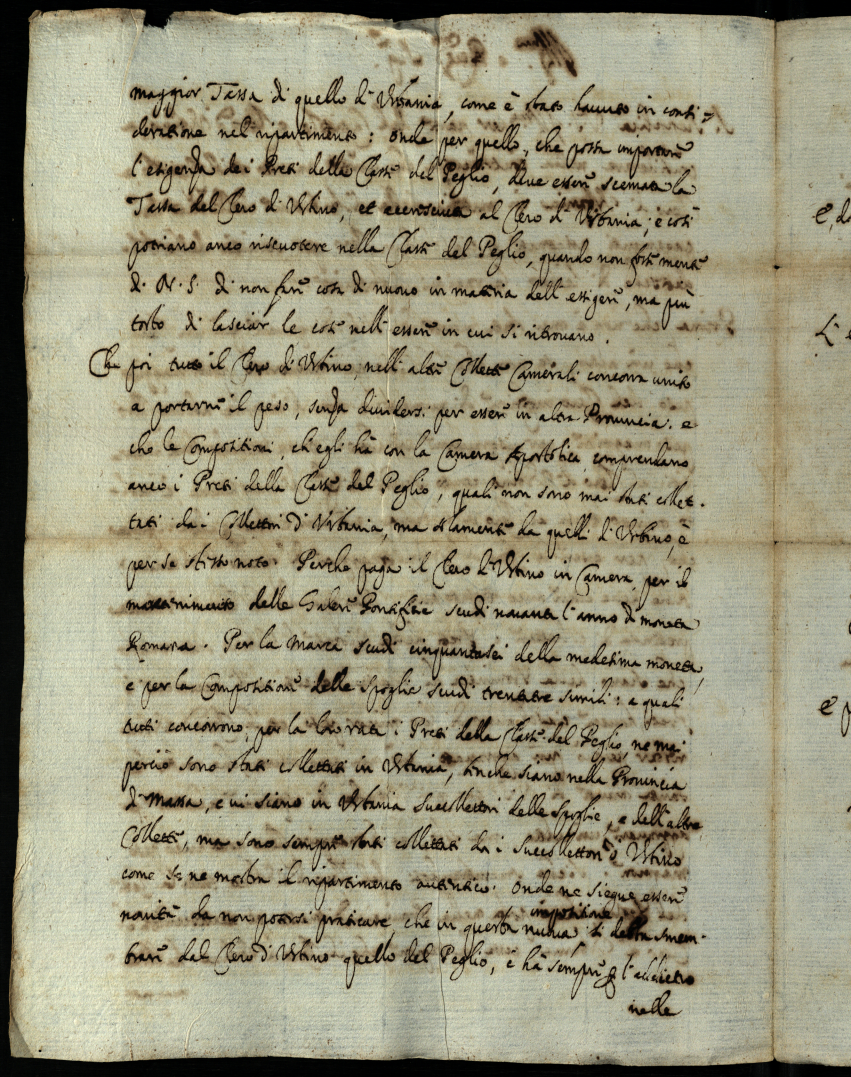 maggior Tassa di quello d'Urbania, come è stato hauuto in consi=
deratione nel ripartimento: onde per quello, che possa importare
l'esigenza dei Preti della Massa del Peglio, deue essere scemata la
Tassa del Clero d'Urbino, et accresciuta al Clero d'Urbania; e così
potriano anco riscuotere nella Massa del Peglio, quando non fosse mente
di N. S. di non fare cosa di nuouo in materia dell'esigere, ma più
tosto di lasciar le cose nell'essere in cui si ritrouano.
Che poi tutto il Clero di Urbino, nell'altre Collette Camerali concorra unito
a portarne il peso, senza diuidersi per essere in altra Prouincia. e
che le Compositioni, ch'egli hà con la Camera Apostolica, comprendano
anco i Preti della Massa del Peglio, quali non sono mai stati collet-
tati da i Collettori d'Urbania, ma solamente da quelli d'Urbino, è
per se stesso noto. Perche paga il Clero d'Urbino in Camera, per il
mantenimento delle Galere Pontificie scudi nouanta l'anno di moneta
Romana. Per la Marca scudi cinquantasei della medesima moneta,
e per la Compositione delle Spoglie scudi trentatre simili: a quali
tutti concorrono, per la lor rata i Preti della Massa del Peglio, ne mai
perciò sono stati collettati in Urbania, benche siano nella Prouincia
di Massa, e ui siano in Urbania Succollettori delle Spoglie, e dell'altre
Collette, ma sono sempre stati collettati da i Succollettori d'Urbino
come se ne mostra il ripartimento autentico. Onde ne siegue essere
nouità da non potersi praticare, che in questa nuoua impositione si debba smem-
brare dal Clero d'Urbino quello del Peglio, e hà sempre l'addietro
nelle